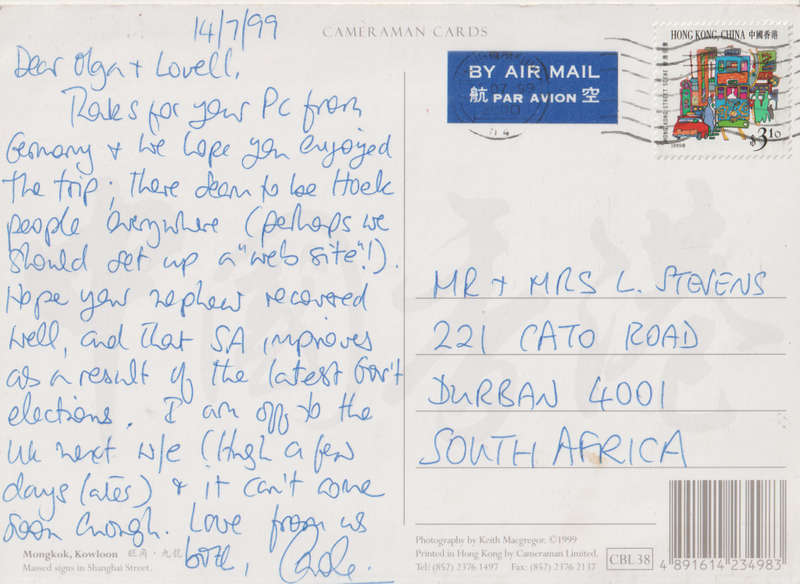 14/7/99
CAMERAMAN CARDS
Dear Olga + Lovell,
Thanks for your PC from
Germany + we hope you enjoyed
the trip; there seem to be Hoek
people everywhere (perhaps we
should set up a "web site"!).
Hope your nephew recovered
well, and that SA improves
as a result of the latest Gov't
elections. I am off to the
UK next w/e (Hugh a few
days later) + it can't come
soon enough. Love from us
both,
Mongkok, Kowloon 旺角·九龍
Massed signs in Shanghai Street.
BY AIR MAIL
航 PAR AVION 空
HONG KONG, CHINA 中國香港
HONG KONG STREET SCENE
$3.10
1999
MR + MRS L. STEVENS
221 CATO ROAD
DURBAN 4001
SOUTH AFRICA
Photography by Keith Macgregor. ©1999
Printed in Hong Kong by Cameraman Limited.
Tel: (852) 2376 1497 Fax: (852) 2376 2137
CBL 38
4 891614 234983